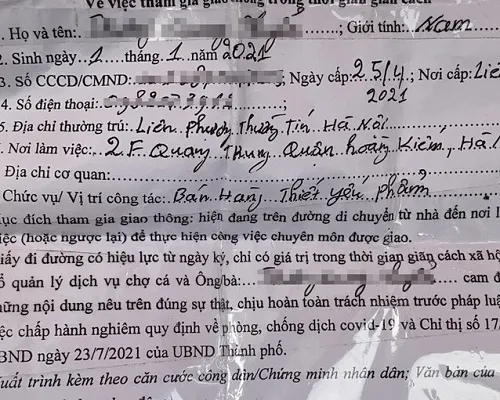 Về việc tham gia giao thông trong thời gian giãn cách
. Họ và tên: ; Giới tính: Nam
2. Sinh ngày 1 tháng 1 năm 2021
3. Số CCCD/CMND: ; Ngày cấp: 25/4/2021; Nơi cấp: Liê
4. Số điện thoại: ;
5. Địa chỉ thường trú: Liên Phương Thường Tín Hà Nội
. Nơi làm việc: 2.F. Quang Trung Quân hoàng Kiếm, Hà
Địa chỉ cơ quan:
Chức vụ/ Vị trí công tác: Bán Hàng Thiết yếu phẩm
ục đích tham gia giao thông: hiện đang trên đường di chuyển từ nhà đến nơi l
iệc (hoặc ngược lại) để thực hiện công việc chuyên môn được giao.
iấy đi đường có hiệu lực từ ngày ký, chỉ có giá trị trong thời gian giãn cách xã hộ
ổ quản lý dịch vụ chợ cá và Ông/bà: cam đ
hững nội dung nêu trên đúng sự thật, chịu hoàn toàn trách nhiệm trước pháp luậ
iệc chấp hành nghiêm quy định về phòng, chống dịch covid-19 và Chỉ thị số 17/
BND ngày 23/7/2021 của UBND Thành phố.
uất trình kèm theo căn cước công dân/Chứng minh nhân dân; Văn bản của